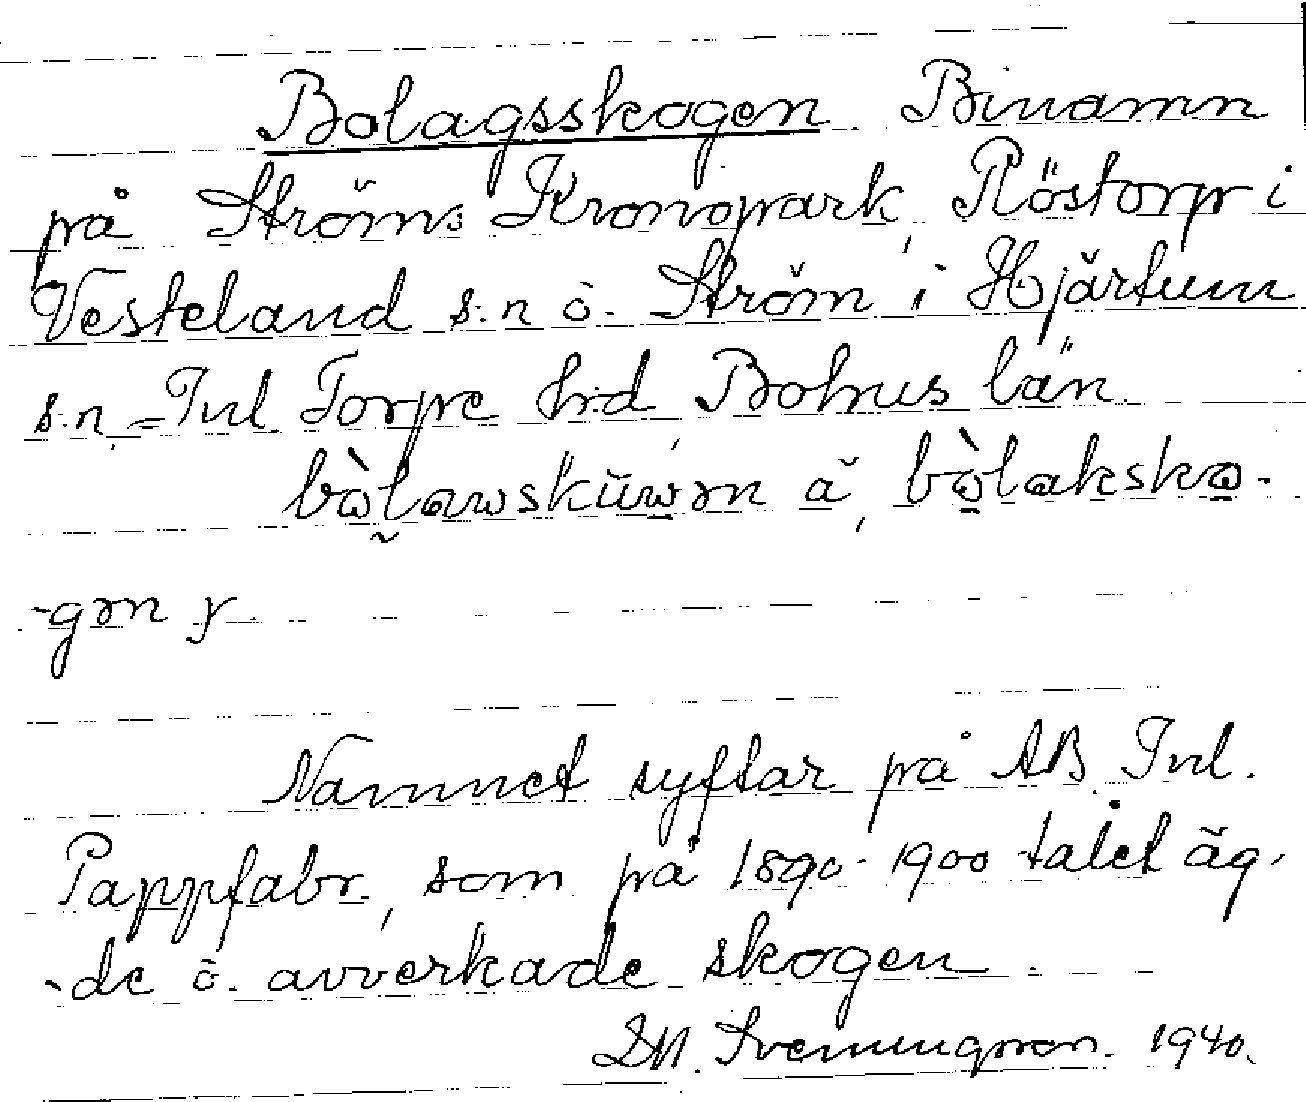 Bolagsskogen Binamn
på Ströms Kronopark, Röstorp i
Vesteland s:n ö. Ström i Hjärtum
s:n, Inl. Torpe hrd Bohus län.
bòlawskūwən ä, bòlaksko-
-gən y.
Namnet syftar på AB Inl.
Pappfabr., som på 1890-1900 talet äg-
-de ö. avverkade skogen.
Svenningsson. 1940.